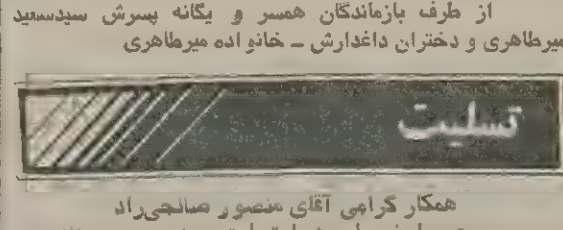 از طرفه بازماندگان همسر و یگانه پسرش سیدسعید
میرطاهری و دختران داغدارش ــ خانواده میرطاهری
تسلیت
همکار گرامی آقای منصور صالحی‌راد